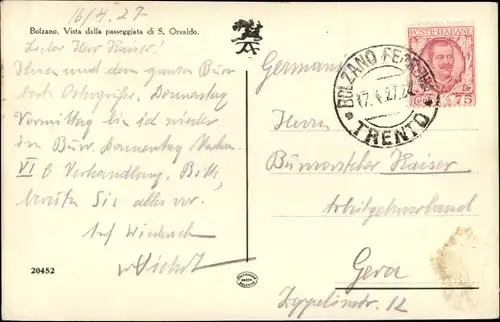 16/4.27
Bolzano. Vista dalla passeggiata di S. Osvaldo.
Lieber Herr Kaiser!
Ihnen und dem ganzen Büro
Ostergrüße. Donnerstag
Vormittag bin ich wieder
im Büro. Donnerstag Nachm.
VI Verhandlung. Bitte
bereiten Sie alles vor.
Auf Wiedersehen
20452
POSTE ITALIANE
Cent. 75
BOLZANO FERROVIA
17.4.27.
TRENTO
Germania
Herrn
Bürovorsteher Kaiser
Arbeitgeberverband
Gera
Zeppelinstr. 12